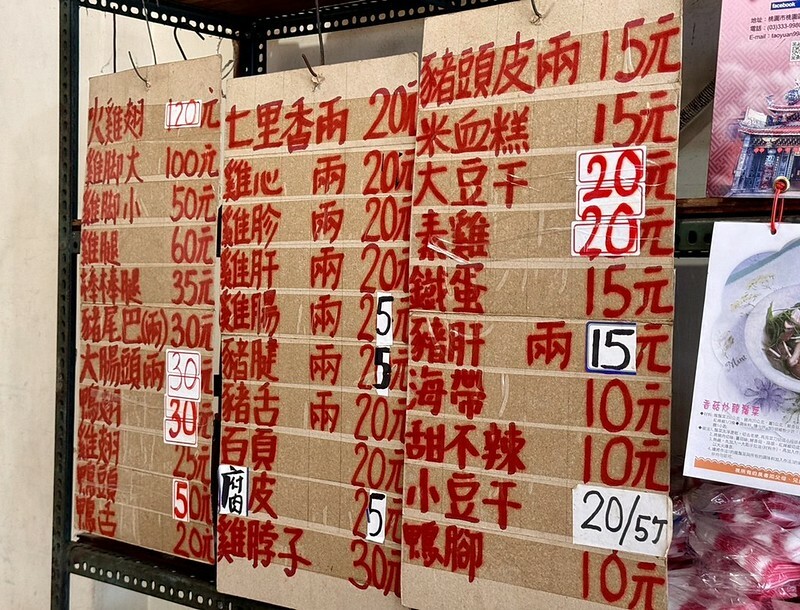 火雞翅 120元
雞脚大 100元
雞脚小 50元
雞腿 60元
棒棒腿 35元
豬尾巴(兩) 30元
大腸頭兩 30
鴨翅 30元
雞翅 25元
鴨頭 50元
鴨舌 20元
七里香兩 20元
雞心 兩 20元
雞胗 兩 20元
雞肝 兩 20元
雞腸 兩 25元
豬腱 兩 25元
豬舌 兩 20元
百頁 20元
腐皮 25元
雞脖子 30元
豬頭皮兩 15元
米血糕 15元
大豆干 20元
素雞 20元
鐵蛋 15元
豬肝 兩 15元
海帶 10元
甜不辣 10元
小豆干 20/5丁
鴨腳 10元
facebook
地址：桃園市桃園
電話：(03)333-998
E-mail：taoyuan99
香菇炒韓腸菜